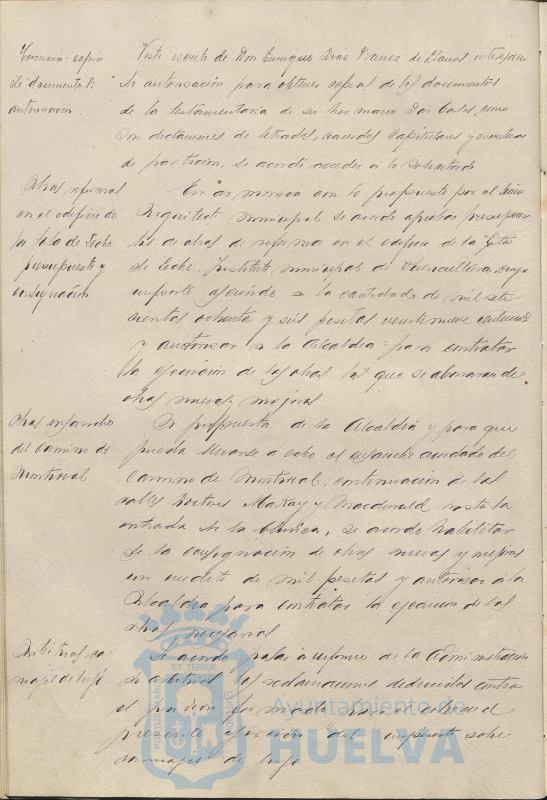 Herencia - copia
de documentos:
autorización.
Visto escrito de Don Enrique Díaz Franco de Llanos interesan
do autorización para obtener copias de los documentos
de la testamentaria de su hermano Don Carlos, como
son dictámenes de letrados, acuerdos Capitulares y escrituras
de partición, se acordó acceder a lo solicitado
Obras reforma
en el edificio de
la Gota de Leche
presupuesto y
consignación
En armonía con lo propuesto por el Señor
Arquitecto municipal se acordó aprobar presupues
tos de obras de reforma en el edificio de la "Gota
de Leche", Instituto municipal de Puericultura, cuyo
importe asciende a la cantidad de mil sete
cientas ochenta y seis pesetas veintinueve céntimos
y autorizar a la Alcaldía para contratar
la ejecución de las obras las que se abonaran de
obras nuevas y mejoras
Obras ensanche
del camino de
Montrocal
A propuesta de la Alcaldía y para que
pueda llevarse a cabo el ensanche acordado del
camino de Montrocal, continuación de las
calles Doctores Mackay y Macdonald hasta la
entrada de la se acordó habilitar
de la consignación de obras nuevas y mejoras
un crédito de mil pesetas y autorizar a la
Alcaldía para contratar la ejecución de las
obras necesarias
Arbitrios ca
rruajes de lujo
Se acordó pasar a informe de la Administración
de arbitrios las reclamaciones deducidas contra
el padrón formado para el
presente ejercicio del impuesto sobre
carruajes de lujo.
PORTUS MARIS
ET TERRAE
CUSTODIA
Ayuntamiento de
HUELVA